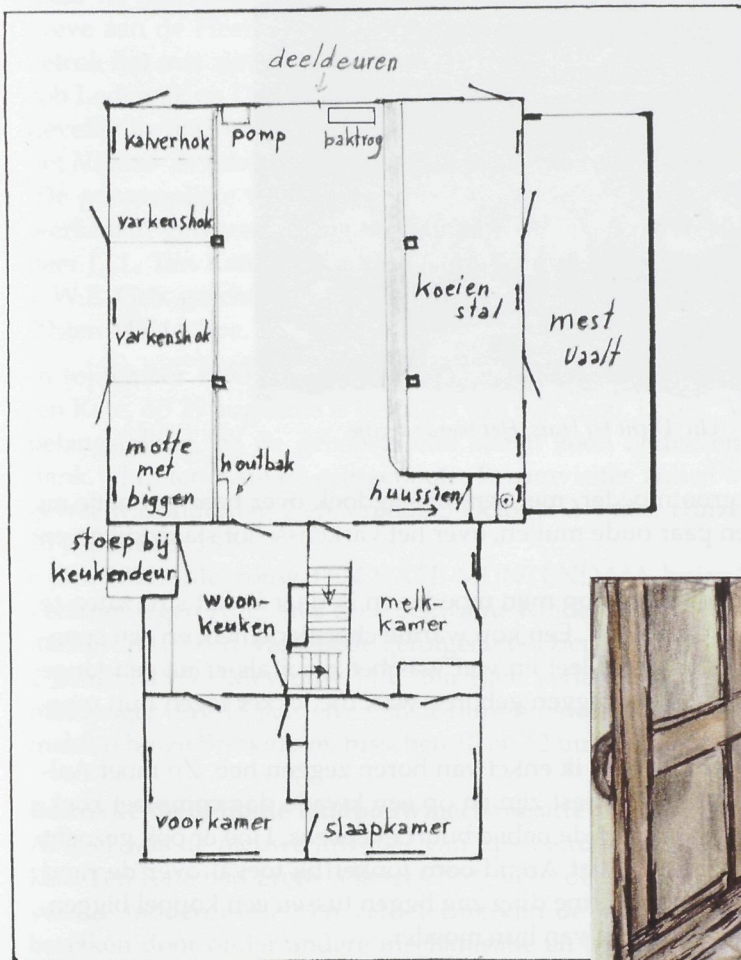 deeldeuren
kalverhok
pomp
baktrog
varkenshok
koeien
stal
mest
vaalt
varkenshok
motte
met
biggen
houtbak
huussien
stoep by
keukendeur
woon-
keuken
melk-
kamer
voorkamer
slaapkamer